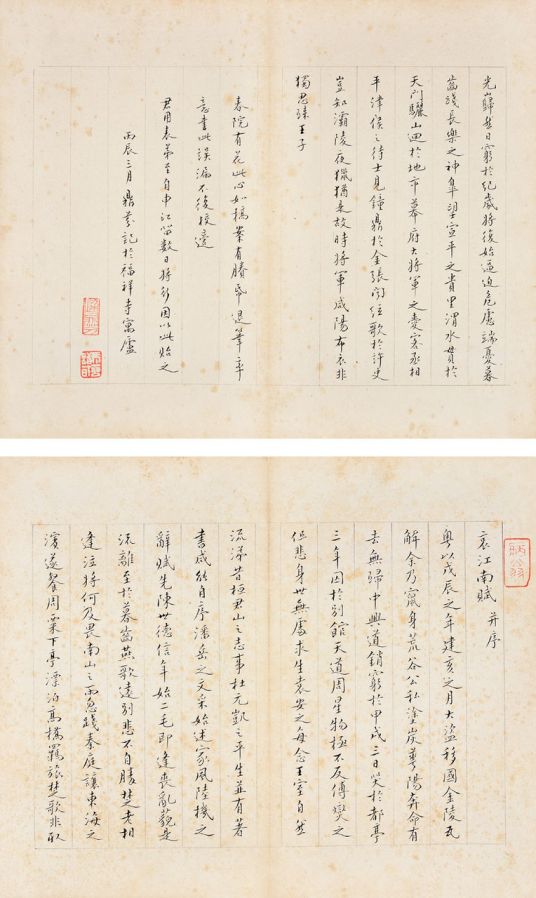 光巋然日窮於紀歲將復始逼迫危慮端憂暮
齒踐長樂之神皋望宣平之貴里渭水貫於
天門驪山迴於地市幕府大將軍之愛客丞相
平津侯之待士見鐘鼎於金張聞弦歌於許史
豈知灞陵夜獵猶是故時將軍咸陽布衣非
獨思歸王子
春院有花此心如槁案有賸紙退筆率
意書此誤漏不復校邊
君用表弟至自申江留數日將行因以此貽之
丙辰三月鼎芬記於福祥寺寓廬
哀江南賦 并序
粵以戊辰之年建亥之月大盜移國金陵瓦
解余乃竄身荒谷公私塗炭華陽奔命有
去無歸中興道銷窮於甲戌三日哭於都亭
三年囚於別館天道周星物極不反傅燮之
但悲身世無處求生袁安之每念王室自然
流涕昔桓君山之志事杜元凱之平生並有著
書咸能自序潘岳之文采始述家風陸機之
辭賦先陳世德信年始二毛即逢喪亂藐是
流離至於暮齒燕歌遠別悲不自勝楚老相
逢泣將何及畏南山之雨忽踐秦庭讓東海之
濱遂餐周粟下亭漂泊高橋羈旅楚歌非取